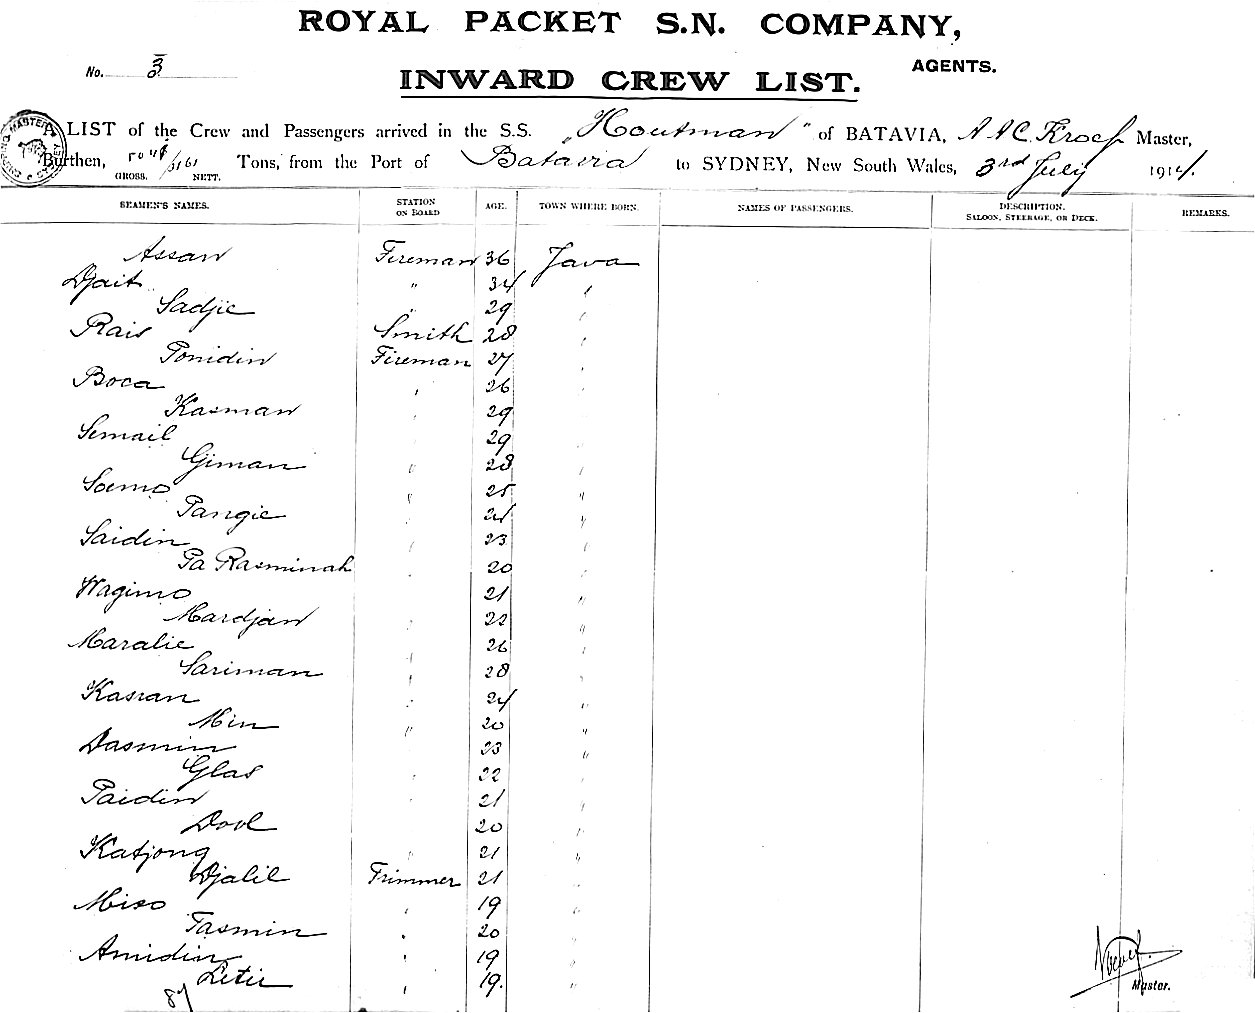 ROYAL PACKET S.N. COMPANY,
AGENTS.
No. 3
INWARD CREW LIST.
LIST of the Crew and Passengers arrived in the S.S. „Houtman" of BATAVIA, A A C Kroef Master,
Burthen, Tons, from the Port of Batavia to SYDNEY, New South Wales, 3rd July 1914.
GROSS. NETT.
SEAMEN'S NAMES. STATION ON BOARD AGE. TOWN WHERE BORN. NAMES OF PASSENGERS. DESCRIPTION. SALOON, STEERAGE, OR DECK. REMARKS.
Assan Fireman 36 Java
Djait " 34 "
Sadjie " 29 "
Rais Smith 28 "
Tonidin Fireman 27 "
Boca " 26 "
Kasman " 29 "
Semail " 29 "
Giman " 28 "
Soemo " 25 "
Pangie " 24 "
Saidin " 23 "
Pa Rasminah " 20 "
Wagimo " 21 "
Mardjan " 22 "
Maralie " 26 "
Sariman " 28 "
Kasran " 24 "
Min " 20 "
Dasmin " 23 "
Glas " 22 "
Paidin " 21 "
Dool " 20 "
Katjong " 21 "
Djalil Trimmer 21 "
Miso " 19 "
Tasmin " 20 "
Amidin " 19 "
Letir " 19. "
87
Master.